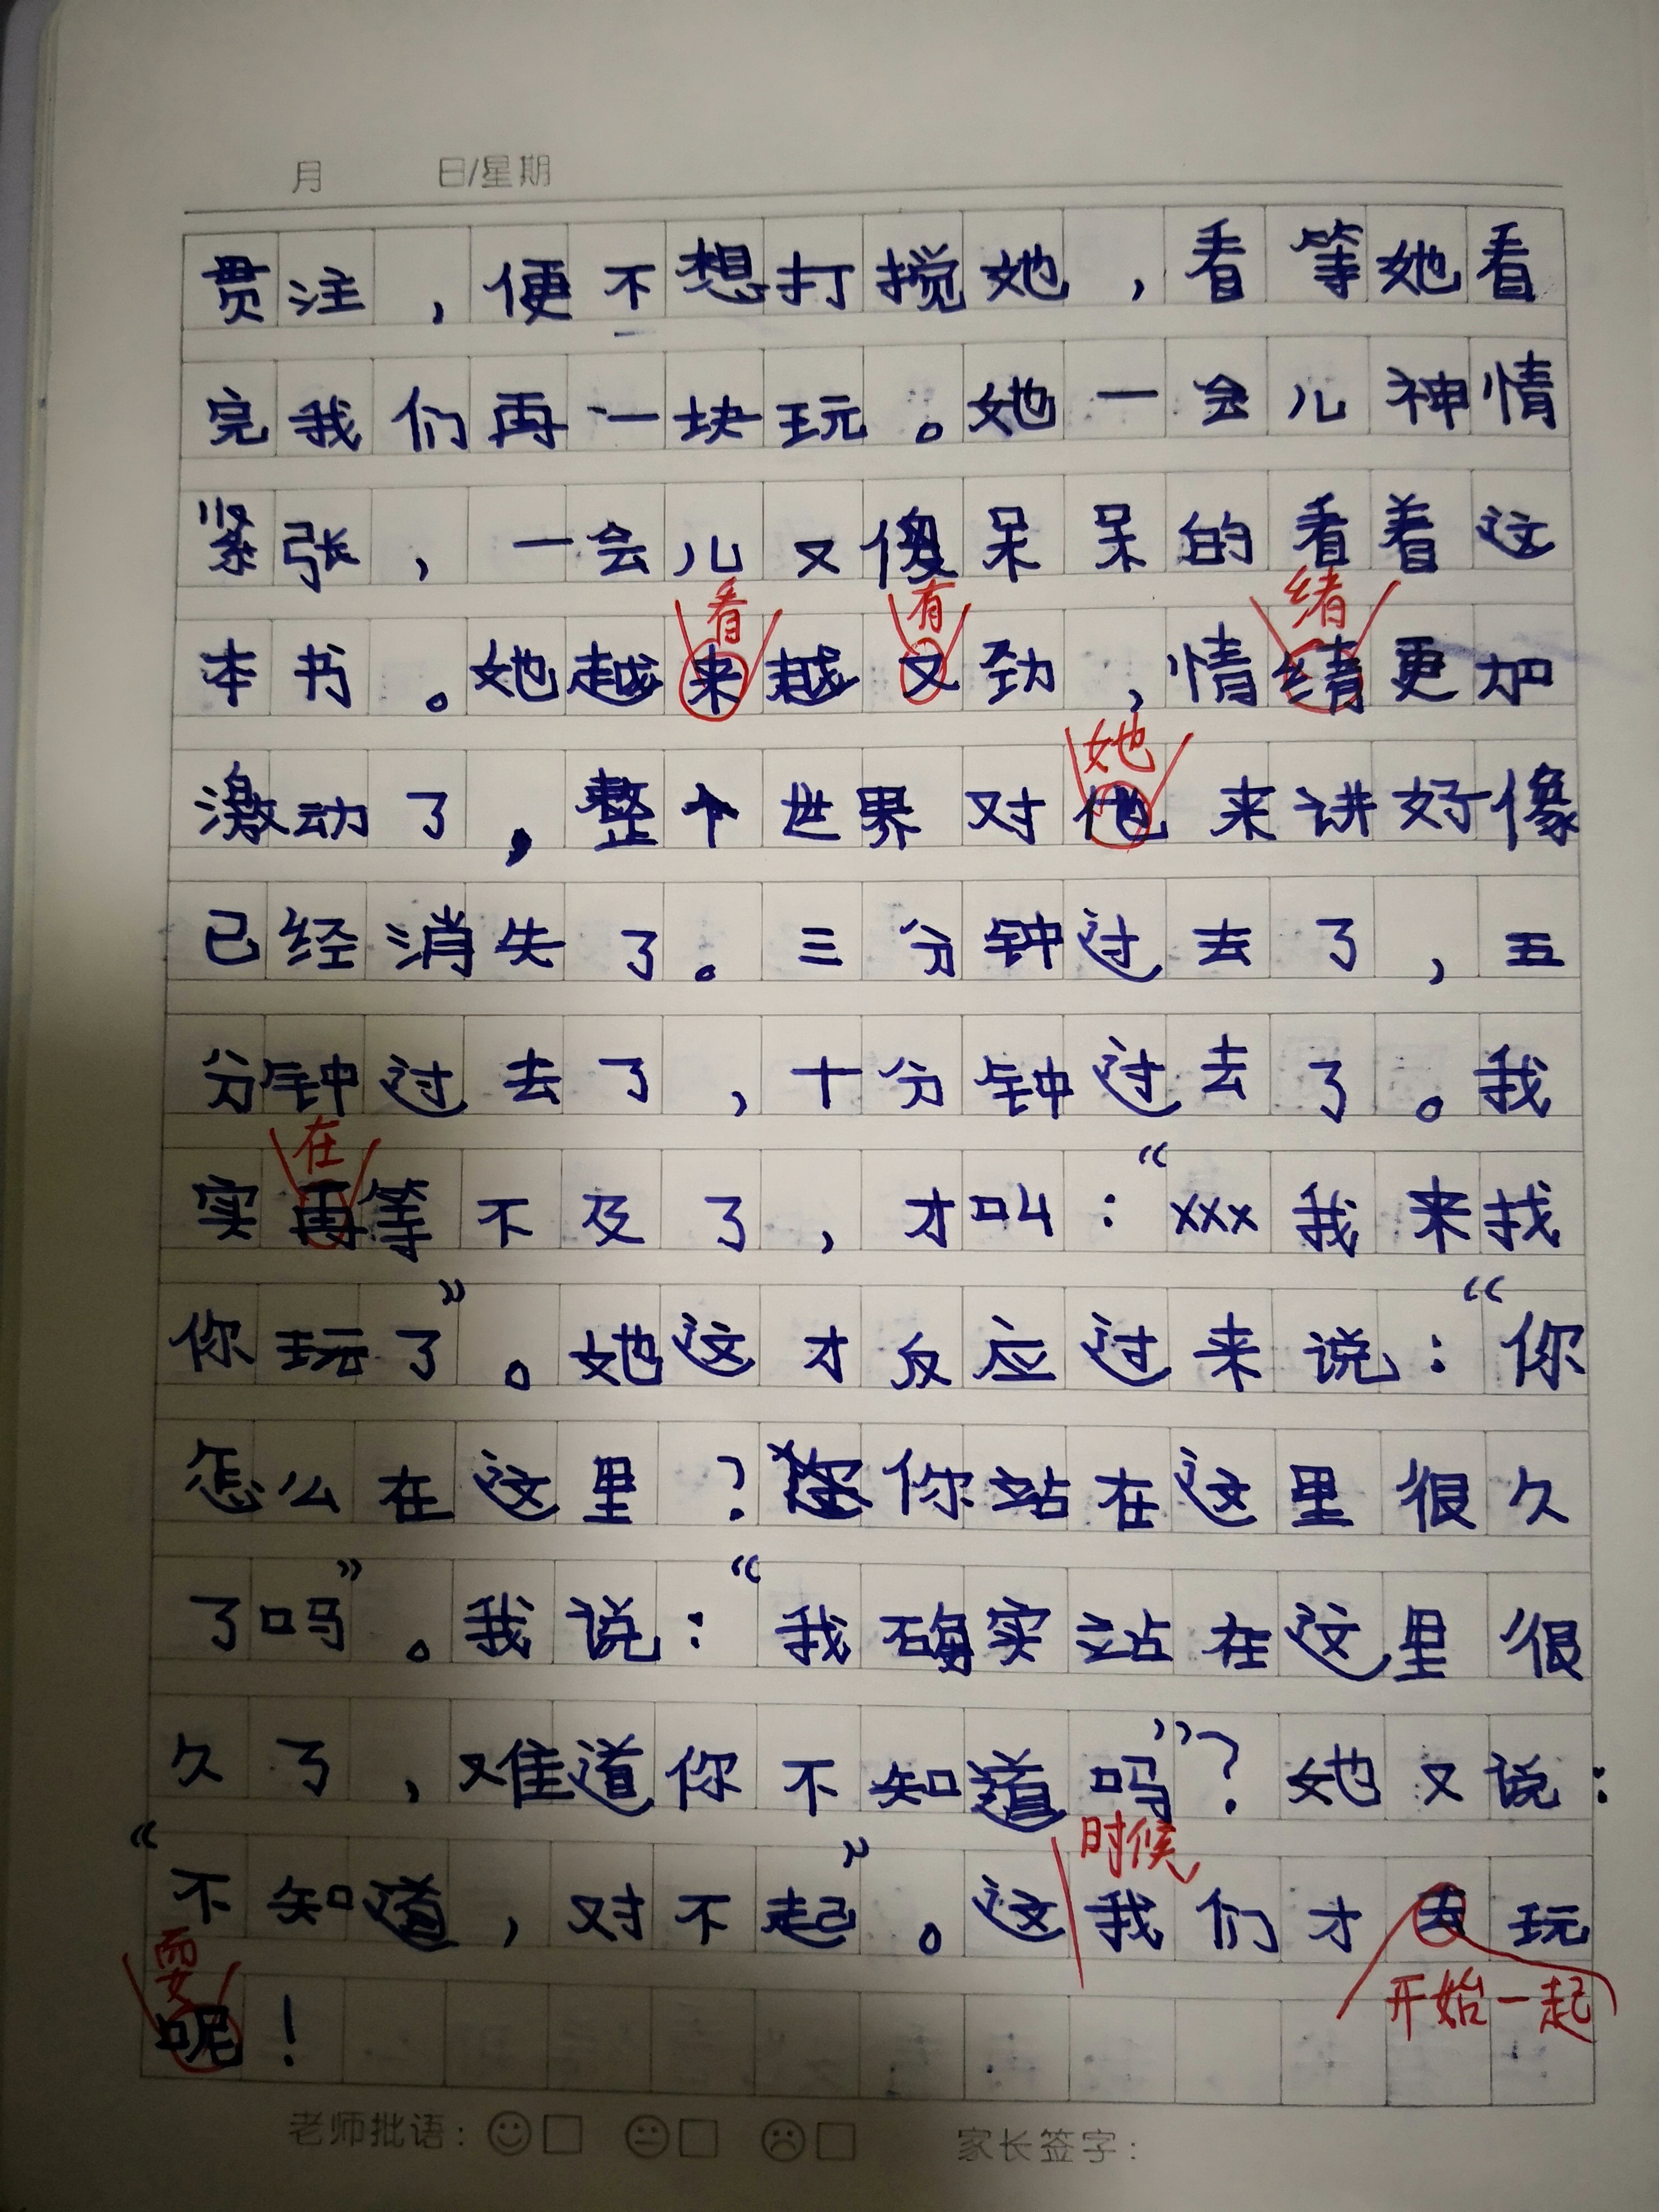 月 日/星期
贯注，便不想打搅她，看等她看
完我们再一块玩。她一会儿神情
紧张，一会儿又傻呆呆的看着这
看 有 绪
本书。她越来越又劲，情绪更加
她
激动了，整个世界对他来讲好像
已经消失了。三分钟过去了，五
分钟过去了，十分钟过去了。我
在
实再等不及了，才叫：“xxx我来找
你玩了”。她这才反应过来说：“你
怎么在这里？你站在这里很久
了吗”。我说：“我确实站在这里很
久了，难道你不知道吗”？她又说：
时候
“不知道，对不起”。这我们才去玩
耍 开始一起
呢！
老师批语： 家长签字：